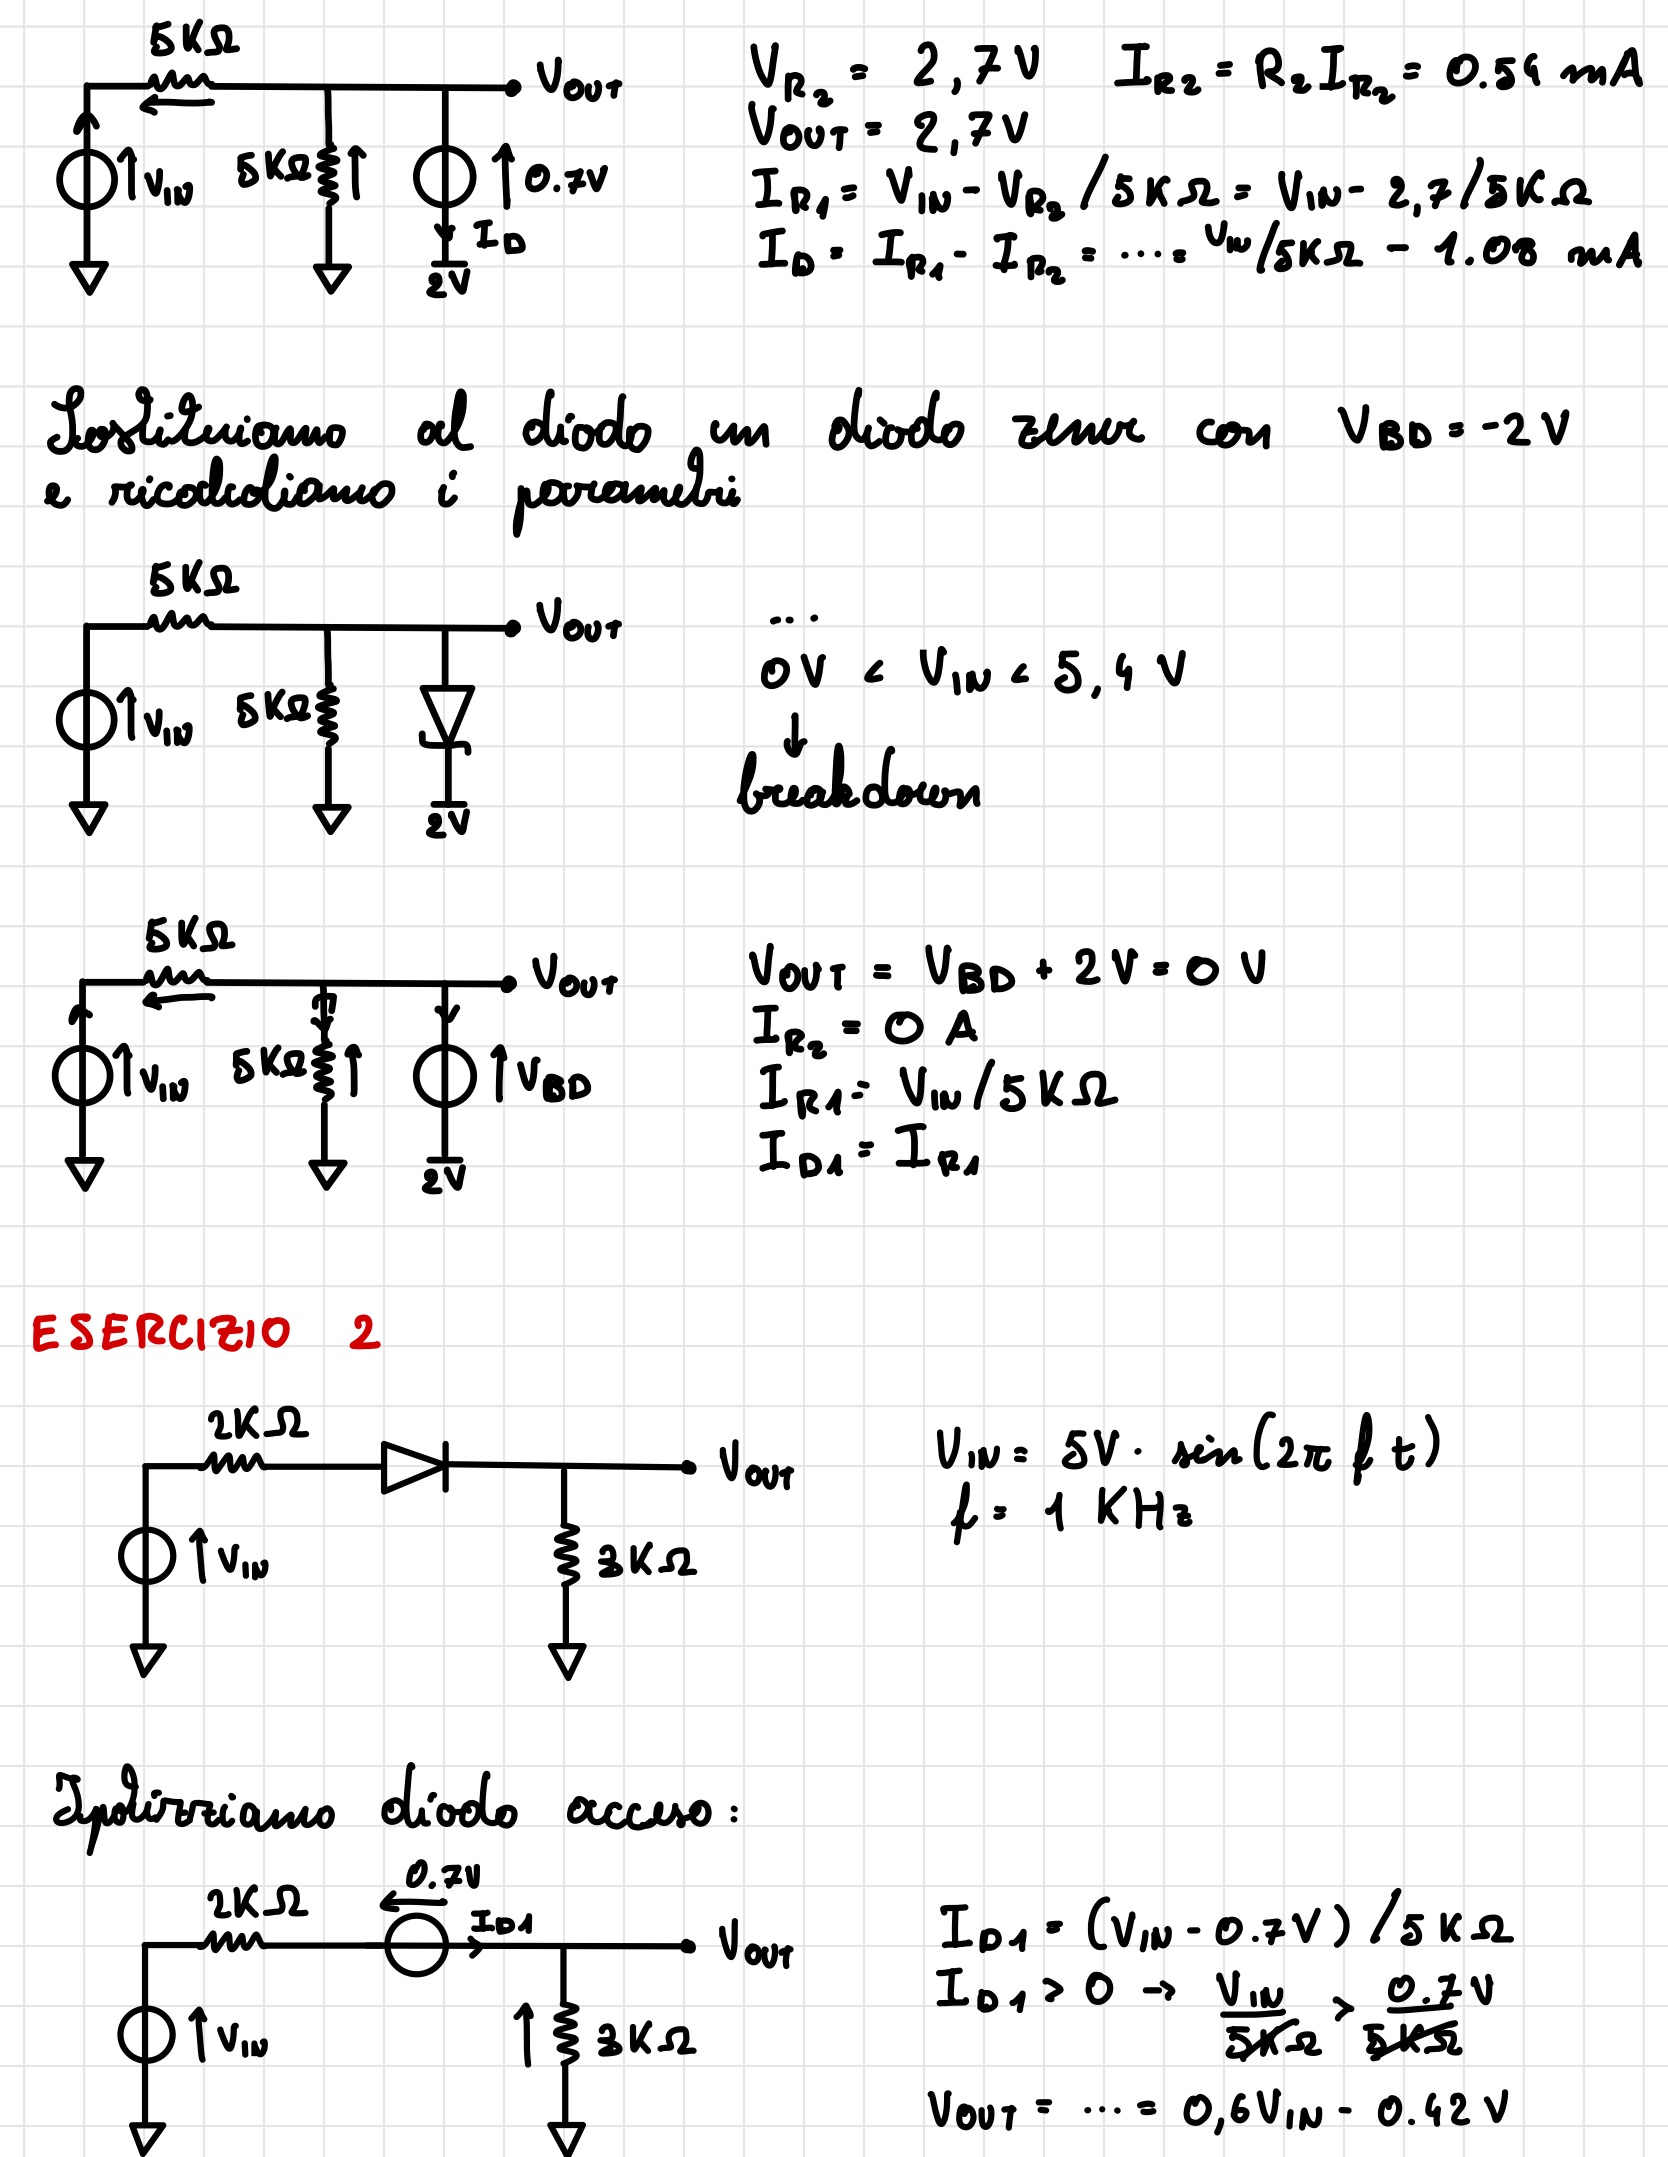 5KΩ
V_OUT
V_IN
5KΩ
0.7V
I_D
2V
V_R2 = 2,7V I_R2 = R_2 I_R2 = 0.54 mA
V_OUT = 2,7V
I_R1 = V_IN - V_R2 / 5KΩ = V_IN - 2,7/5KΩ
I_D = I_R1 - I_R2 = .... = V_IN/5KΩ - 1.08 mA
Sostituiamo al diodo un diodo zener con V_BD = -2V
e ricalcoliamo i parametri
5KΩ
V_OUT
V_IN
5KΩ
2V
...
0V < V_IN < 5,4 V
↓
breakdown
5KΩ
V_OUT
V_IN
5KΩ
V_BD
2V
V_OUT = V_BD + 2V = 0 V
I_R2 = 0 A
I_R1 = V_IN/5KΩ
I_D1 = I_R1
ESERCIZIO 2
2KΩ
V_OUT
V_IN
3KΩ
V_IN = 5V · sin(2π f t)
f = 1 KHz
Ipotizziamo diodo acceso:
0.7V
2KΩ
I_D1
V_OUT
V_IN
3KΩ
I_D1 = (V_IN - 0.7V) / 5KΩ
I_D1 > 0 → V_IN/5KΩ > 0.7V/5KΩ
V_OUT = ... = 0,6V_IN - 0.42 V